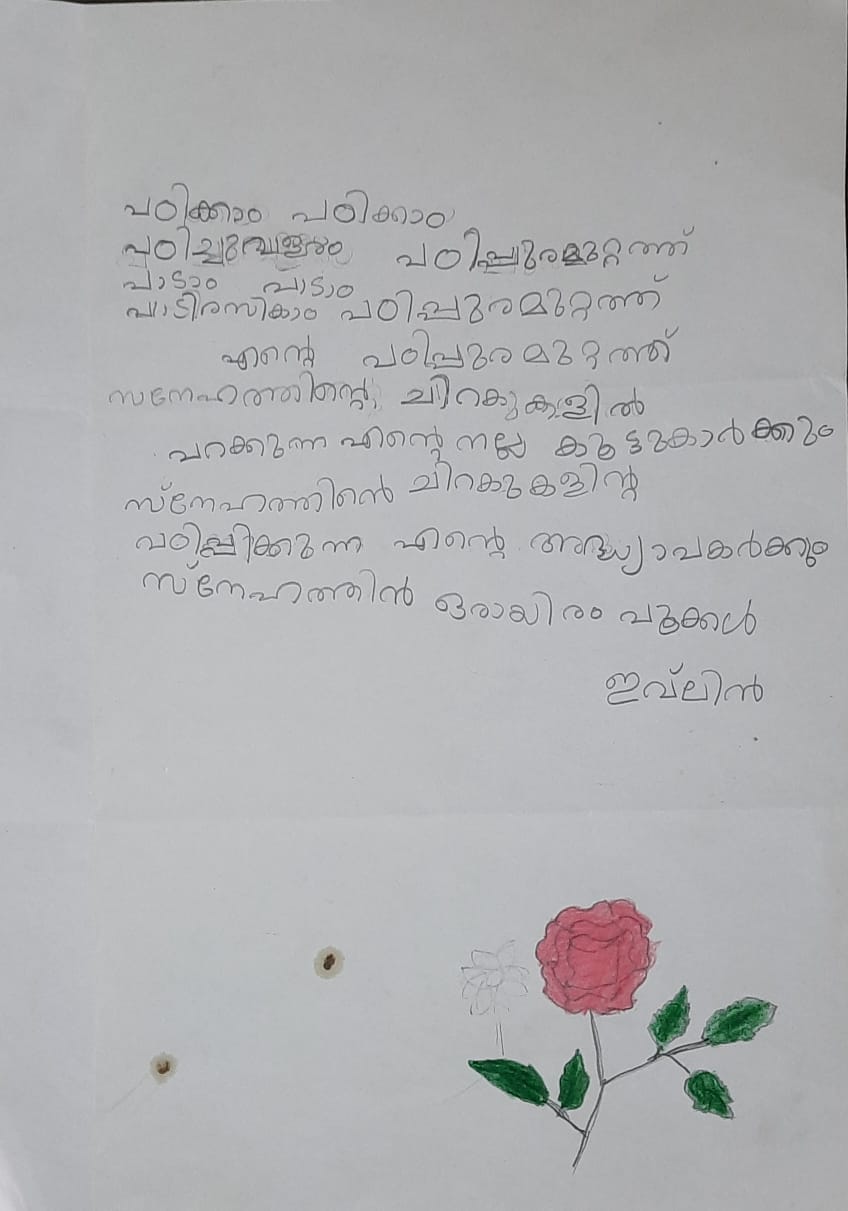 പഠിക്കാം പഠിക്കാം
പഠിച്ചുവളരാം പഠിപ്പുരമുറ്റത്ത്
പാടാം പാടാം
പാടിരസികാം പഠിപ്പുരമുറ്റത്ത്
എന്റെ പഠിപ്പുരമുറ്റത്ത്
സനേഹത്തിന്റെ ചിറകുകളിൽ
പറക്കുന്ന എന്റെ നല്ല കൂട്ടുകാർക്കും
സ്നേഹത്തിൻ ചിറകുകളിന്റ
പഠിപ്പിക്കുന്ന എന്റെ അദ്ധ്യാപകർക്കും
സ്നേഹത്തിൻ ഒരായിരം പൂക്കൾ
ഇവ്ലിൻ